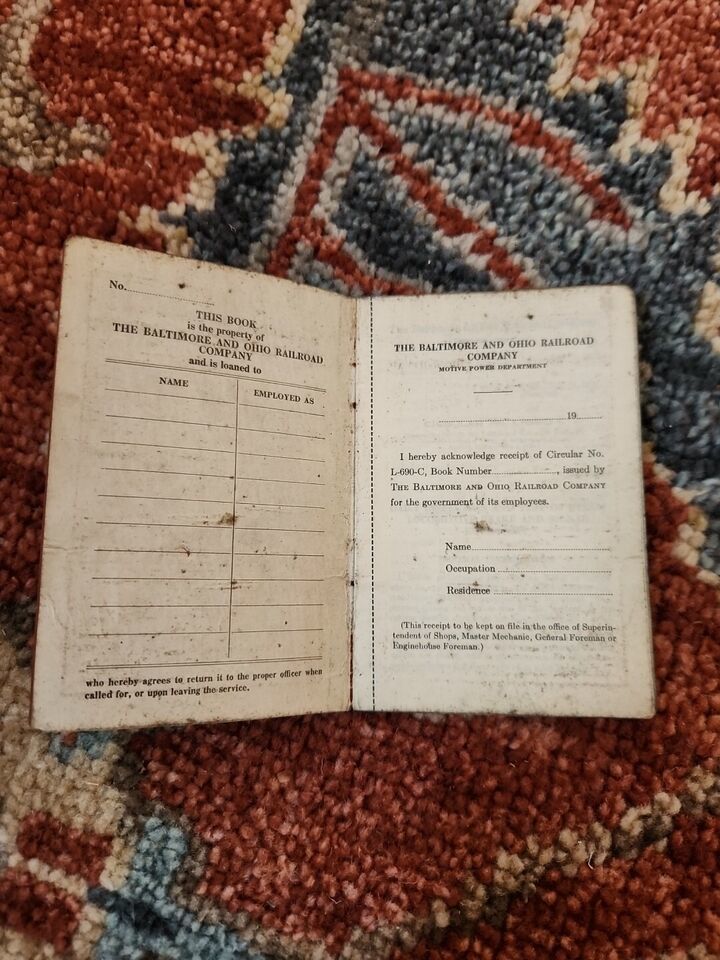 No.
THIS BOOK
is the property of
THE BALTIMORE AND OHIO RAILROAD
COMPANY
and is loaned to
NAME EMPLOYED AS
who hereby agrees to return it to the proper officer when
called for, or upon leaving the service.
THE BALTIMORE AND OHIO RAILROAD
COMPANY
MOTIVE POWER DEPARTMENT
19
I hereby acknowledge receipt of Circular No.
L-690-C, Book Number, issued by
THE BALTIMORE AND OHIO RAILROAD COMPANY
for the government of its employees.
Name
Occupation
Residence
(This receipt to be kept on file in the office of Superin-
tendent of Shops, Master Mechanic, General Foreman or
Enginehouse Foreman.)